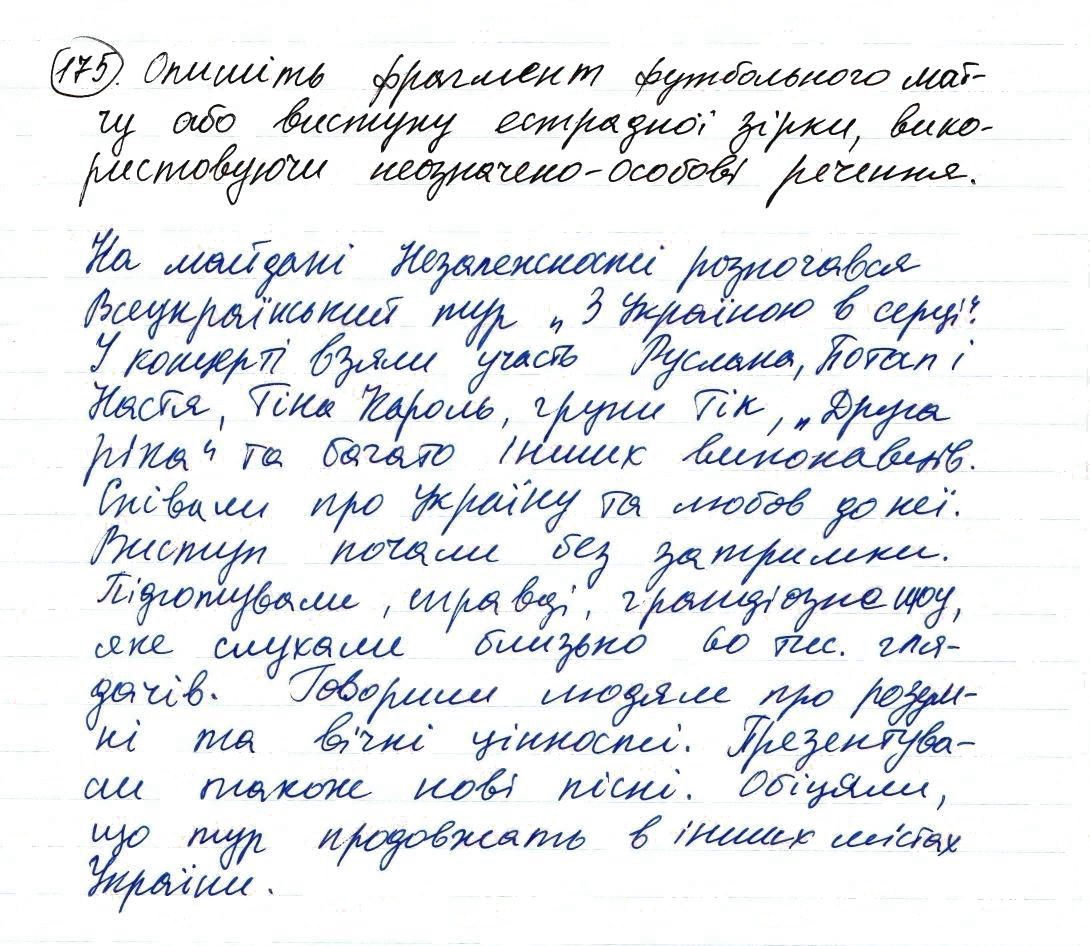 175. Опишіть фрагмент футбольного мат-
чу або виступу естрадної зірки, вико-
ристовуючи неозначено-особові речення.
На майдані Незалежності розпочався
Всеукраїнський тур „З Україною в серці“.
У концерті взяли участь Руслана, Потап і
Настя, Тіна Кароль, групи Тік, „Друга
ріка“ та багато інших виконавців.
Співали про Україну та любов до неї.
Виступ почали без затримки.
Підготували, справді, грандіозне шоу,
яке слухали близько 60 тис. гля-
дачів. Говорили людям про розум-
ні та вічні цінності. Презентува-
ли також нові пісні. Обіцяли,
що тур продовжать в інших містах
України.